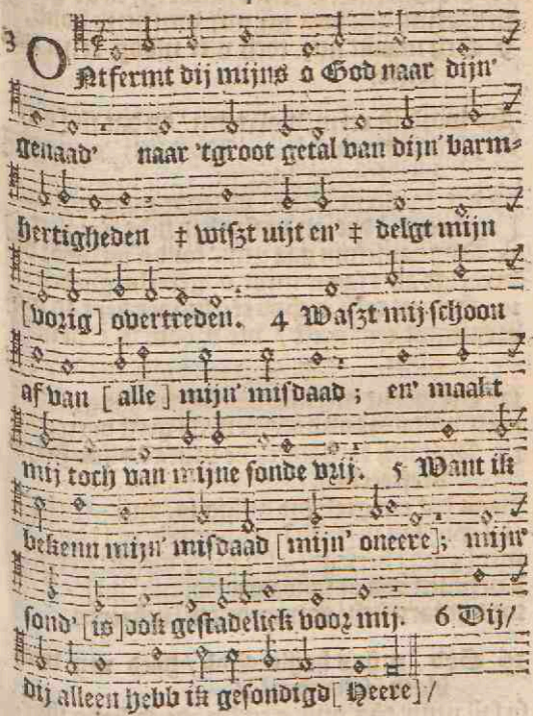 3 ONtfermt dij mijns o God naar dijn'
genaad' naar 'tgroot getal van dijn' barm-
hertigheden ‡ wiſzt uijt en' ‡ delgt mijn
[vorig] overtreden. 4 Waſzt mij ſchoon
af van [alle] mijn' miſdaad; en' maakt
mij toch van mijne ſonde vrij. 5 Want ik
bekenn mijn' miſdaad [mijn' oneere]; mijn'
ſond' [is] ook geſtadelick voor mij. 6 Dij/
dij alleen hebb ik geſondigd [Heere]/